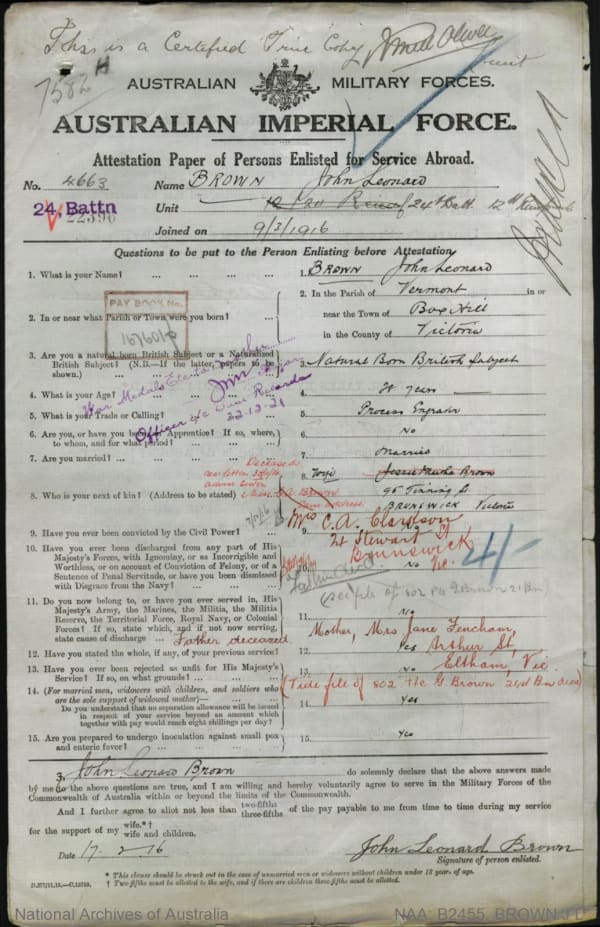 This is a Certified True Copy
7582 H
AUSTRALIAN MILITARY FORCES.
AUSTRALIAN IMPERIAL FORCE.
Attestation Paper of Persons Enlisted for Service Abroad.
No. 4663 Name BROWN John Leonard
24, Battn Unit of 24th Batt. 12th
22390
Joined on 9/3/1916
Questions to be put to the Person Enlisting before Attestation.
1. What is your Name? ... ... ... ... 1. BROWN John Leonard
2. In or near what Parish or Town were you born? 2. In the Parish of Vermont in or
near the Town of Box Hill
in the County of Victoria
PAY BOOK No.
3. Are you a natural born British Subject or a Naturalized British Subject? (N.B.—If the latter, papers to be shown.) ... 3. Natural Born British Subject
4. What is your Age? ... 4. years
5. What is your Trade or Calling? ... 5. Process Engraver
6. Are you, or have you been an Apprentice? If so, where, to whom, and for what period? ... 6. No
7. Are you married? ... 7. Married
Officer i/c Base Records
22.12.21
Deceased
8. Who is your next of kin? (Address to be stated) 8. Wife Brown
95 Tinning St
BRUNSWICK Victoria
Mrs C. A. Clarkson
21 Stewart St
Brunswick
Vic.
9. Have you ever been convicted by the Civil Power? ... 9.
10. Have you ever been discharged from any part of His Majesty's Forces, with Ignominy, or as Incorrigible and Worthless, or on account of Conviction of Felony, or of a Sentence of Penal Servitude, or have you been dismissed with Disgrace from the Navy? ... 10. No
4/-
(see file of 802 Pte G Brown 21 Bn)
11. Do you now belong to, or have you ever served in, His Majesty's Army, the Marines, the Militia, the Militia Reserve, the Territorial Force, Royal Navy, or Colonial Forces? If so, state which, and if not now serving, state cause of discharge ... 11. No
Father deceased
Mother, Mrs Jane Fencham,
Arthur St,
Eltham, Vic.
(Vide file of 802 Pte G. Brown 21st Bn
12. Have you stated the whole, if any, of your previous service? 12. Yes
13. Have you ever been rejected as unfit for His Majesty's Service? If so, on what grounds? ... 13. No
14. (For married men, widowers with children, and soldiers who are the sole support of widowed mother)—
Do you understand that no separation allowance will be issued in respect of your service beyond an amount which together with pay would reach eight shillings per day? 14. Yes
15. Are you prepared to undergo inoculation against small pox and enteric fever? ... 15. Yes
I, John Leonard Brown do solemnly declare that the above answers made
by me to the above questions are true, and I am willing and hereby voluntarily agree to serve in the Military Forces of the
Commonwealth of Australia within or beyond the limits of the Commonwealth.
And I further agree to allot not less than two-fifths three-fifths of the pay payable to me from time to time during my service
for the support of my wife.*† wife and children.
Date 17. 2. 16 John Leonard Brown
Signature of person enlisted.
* This clause should be struck out in the case of unmarried men or widowers without children under 18 year. of age.
† Two-fifths must be allotted to the wife, and if there are children three-fifths must be allotted.
National Archives of Australia NAA: B2455, BROWN J L